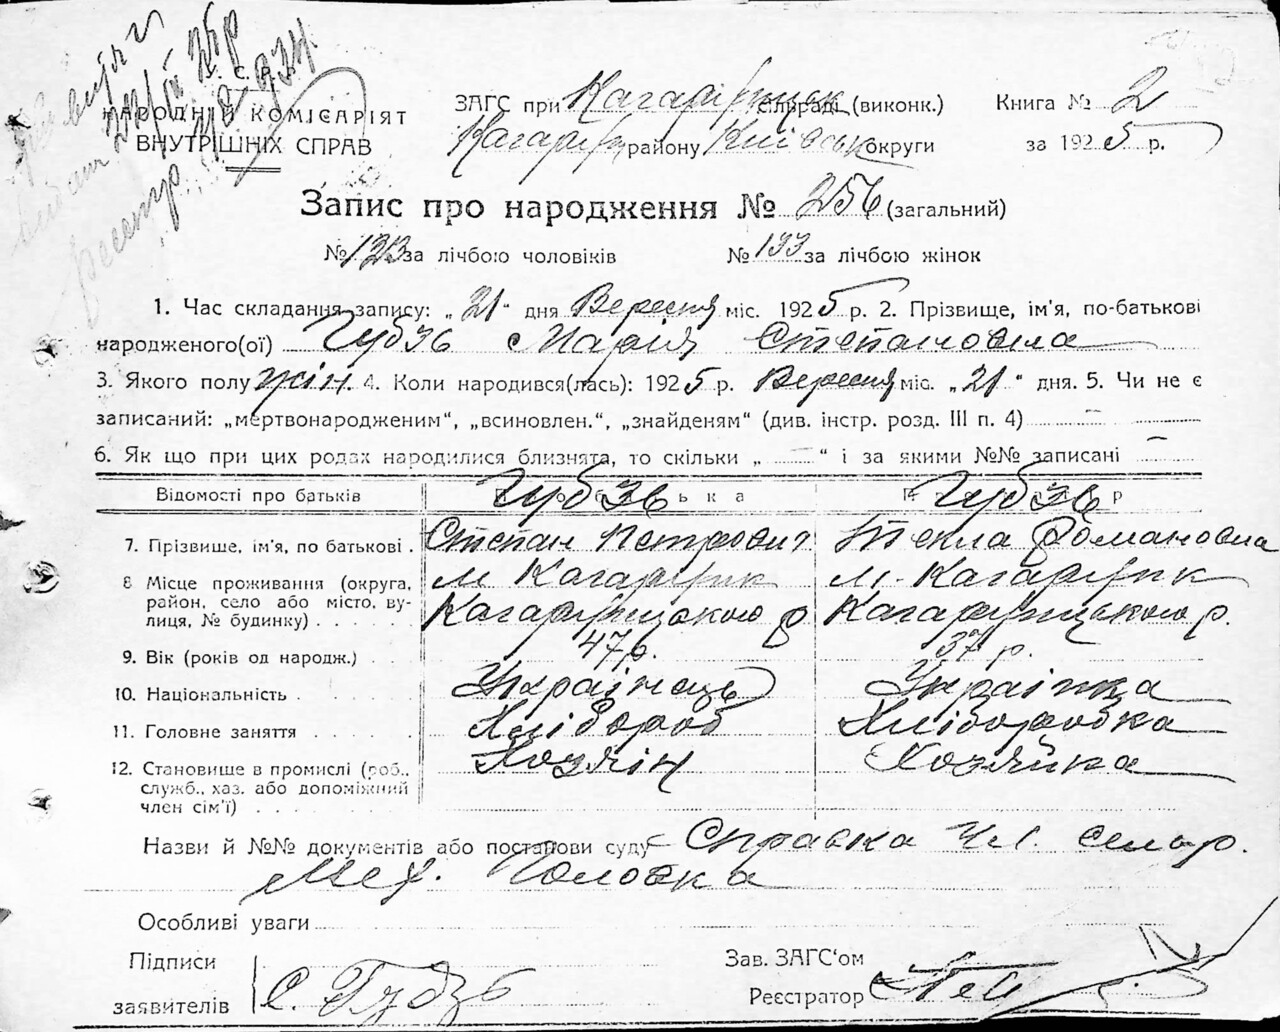 У. С. Р. Р.
НАРОДНІЙ КОМІСАРІЯТ
ВНУТРІШНІХ СПРАВ
ЗАГС при Кагарлицьк. сільраді (виконк.)
Кагарлиц району Київськ округи
Книга № 2
за 1925 р.
Запис про народження № 256 (загальний)
№ 123 за лічбою чоловіків № 133 за лічбою жінок
1. Час складання запису: „21“ дня Вересня міс. 1925 р. 2. Прізвище, ім'я, по-батькові
народженого(ої) Гудзь Марія Степановна
3. Якого полу жін. 4. Коли народився(лась): 1925 р. Вересня міс. „21“ дня. 5. Чи не є
записаний: „мертвонародженим“, „всиновлен.“, „знайденям“ (див. інстр. розд. III п. 4)
6. Як що при цих родах народилися близнята, то скільки „ — “ і за якими №№ записані —
Відомості про батьків Гудзь Гудзь
7. Прізвище, ім'я, по батькові . Степан Петрович Текла Романовна
8 Місце проживання (округа, м Кагарлик м. Кагарлик
район, село або місто, ву-
лиця, № будинку) . . . . . Кагарлицького р Кагарлицького р.
9. Вік (років од народж.) . . 47 р. 37 р.
10. Національність . . . . . Українець Українка
11. Головне заняття . . . . . Хлібороб Хліборобка
12. Становише в промислі (роб., Хозяїн Хозяйка
служб., хаз. або допоміжний
член сім'ї) . . . . . .
Назви й №№ документів або постанови суду Справка Чл. сельр.
Половка
Особливі уваги
Підписи
заявителів
С. Гудзь
Зав. ЗАГС‘ом
Реєстратор